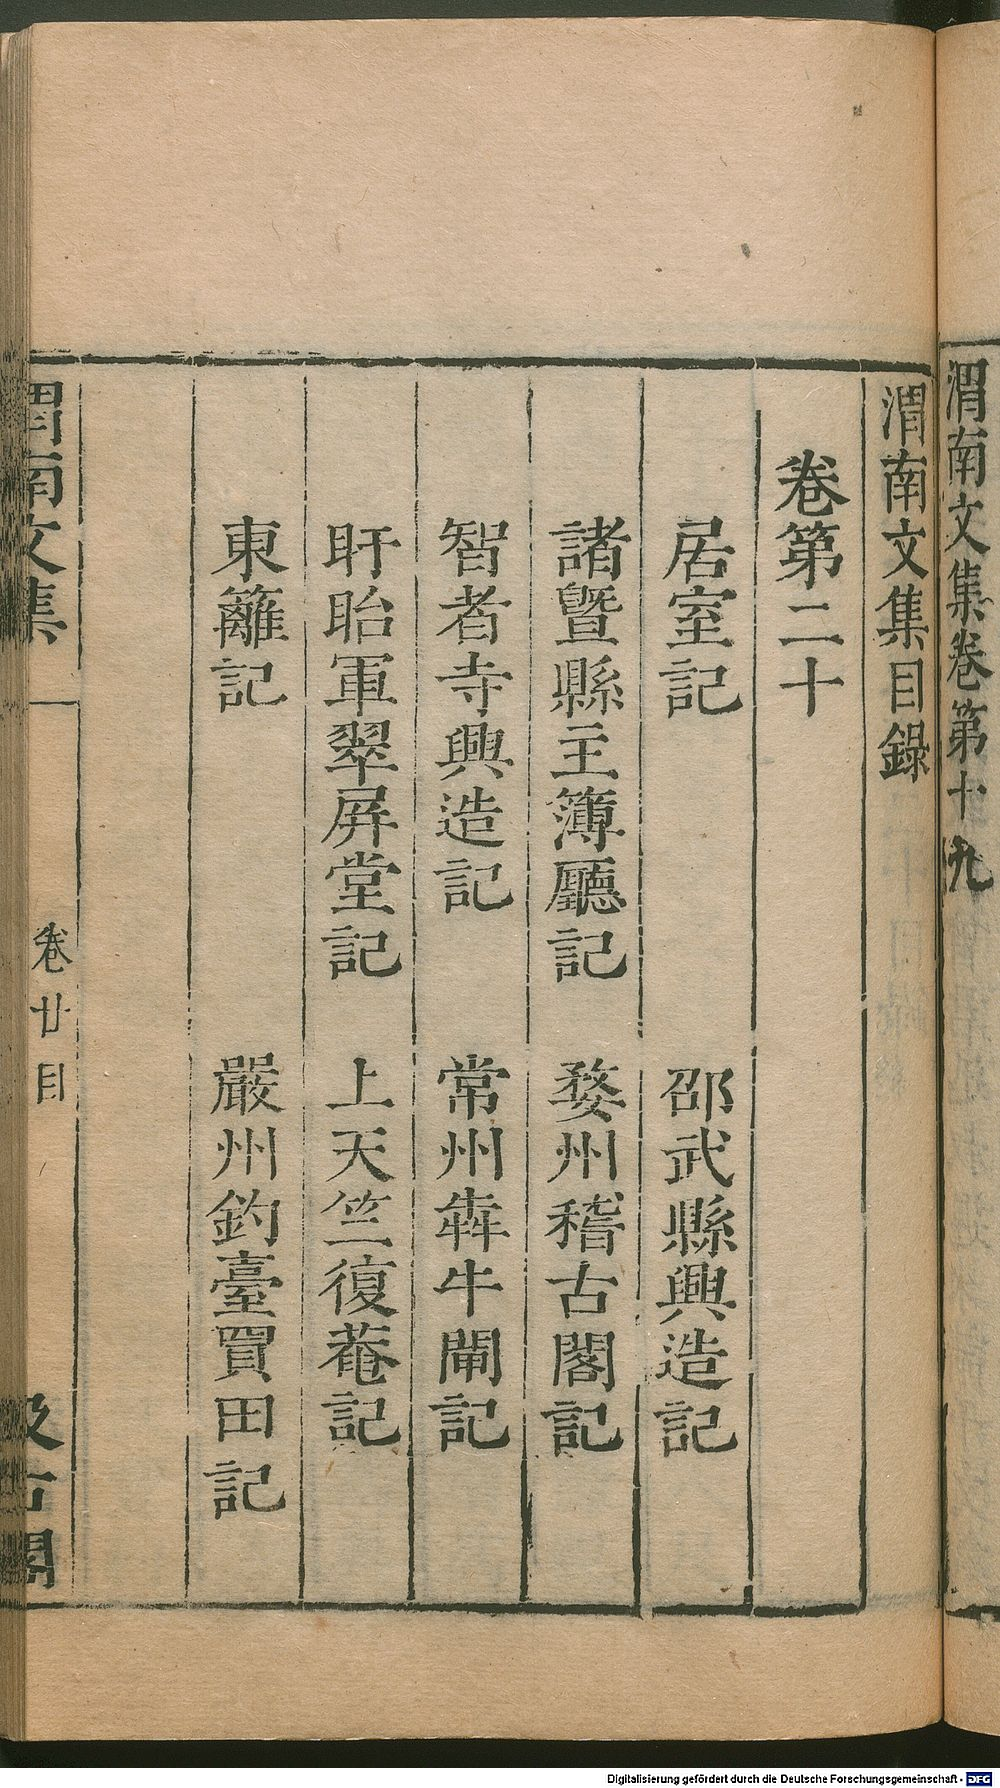 渭南文集卷第十九
渭南文集目錄
卷第二十
居室記　邵武縣興造記
諸曁縣主簿廳記　婺州稽古閣記
智者寺興造記　常州犇牛閘記
盱眙軍翠屏堂記　上天竺復菴記
東籬記　嚴州釣臺買田記
渭南文集　卷廿目　汲古閣
Digitalisierung gefördert durch die Deutsche Forschungsgemeinschaft - DFG